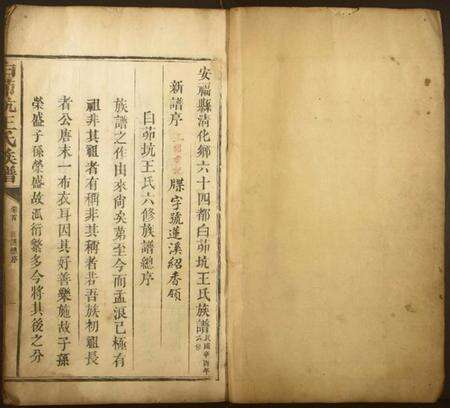 安福縣清化鄉六十四都白茆坑王氏族譜民國辛酉年六修
新譜序
牒字號蓮溪紹香領
白茆坑王氏六修族譜總序
族譜之作由來尚矣第至今而孟浪已極有
祖非其祖者有稱非其稱者若吾族初祖長
者公唐末一布衣耳因其好善樂施故子孫
榮盛子孫榮盛故瓜衍繁多今將其後之分
白茆坑王氏族譜
卷首